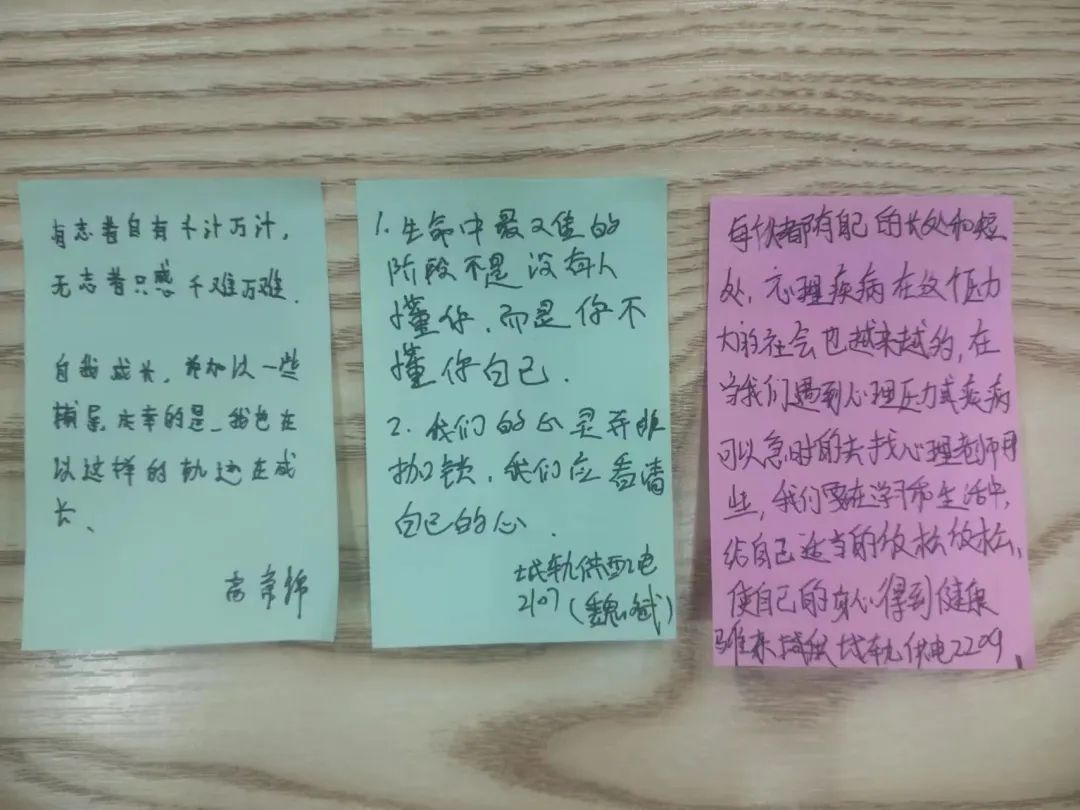 有志者自有千计万计，
无志者只感千难万难．
自我成长，并加以一些
辅导，庆幸的是，我也在
以这样的轨迹在成
长、
高
1．生命中最又佳的
阶段不是没有人
懂你，而是你不
懂你自己．
2．我们的心灵并非
枷锁，我们应看清
自己的心．
城轨供配电
2107（魏斌）
每个人都有自己的长处和短
处，心理疾病在这个压力
大的社会也越来越的，在
当我们遇到心理压力或疾病
可以急时的去找心理老师
些，我们要在学习和生活中，
给自己适当的放松放松，
使自己的身心得到健康
城轨供电2209